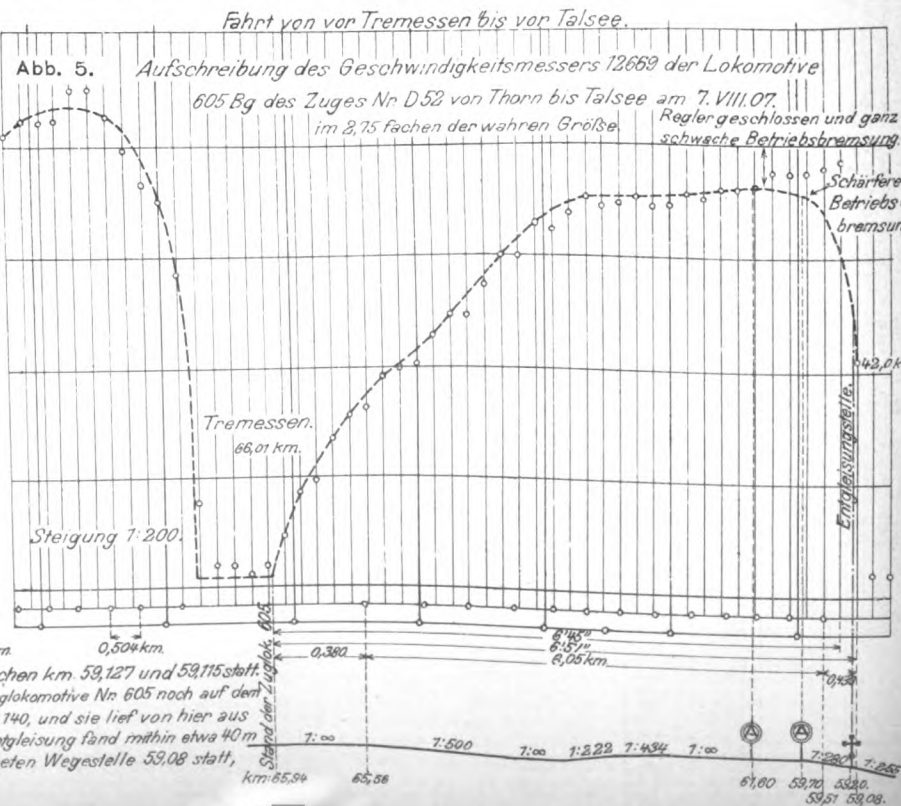 Fahrt von vor Tremessen bis vor Talsee.
Abb. 5.
Aufschreibung des Geschwindigkeitsmessers 12669 der Lokomotive
605 Bg des Zuges Nr. D52 von Thorn bis Talsee am 7. VIII. 07.
im 2,75 fachen der wahren Größe.
Regler geschlossen und ganz
schwache Betriebsbremsung.
Schärfere
Betriebs-
bremsun
42,0 k
Tremessen.
66,01 km.
Entgleisungstelle.
Steigung 1:200.
Stand der Zuglok. 605.
6'45"
6'51"
6,05 km.
m.
0,504 km.
0,380
chen km. 59,127 und 59,115 statt.
glokomotive Nr. 605 noch auf dem
140, und sie lief von hier aus
tgleisung fand mithin etwa 40 m
eten Wegestelle 59,08 statt,
A
A
1:∞
1:500
1:∞
1:222
1:434
1:∞
1:280
km: 65,94
65,56
61,60
59,70
59,20.
59,51
59,08.